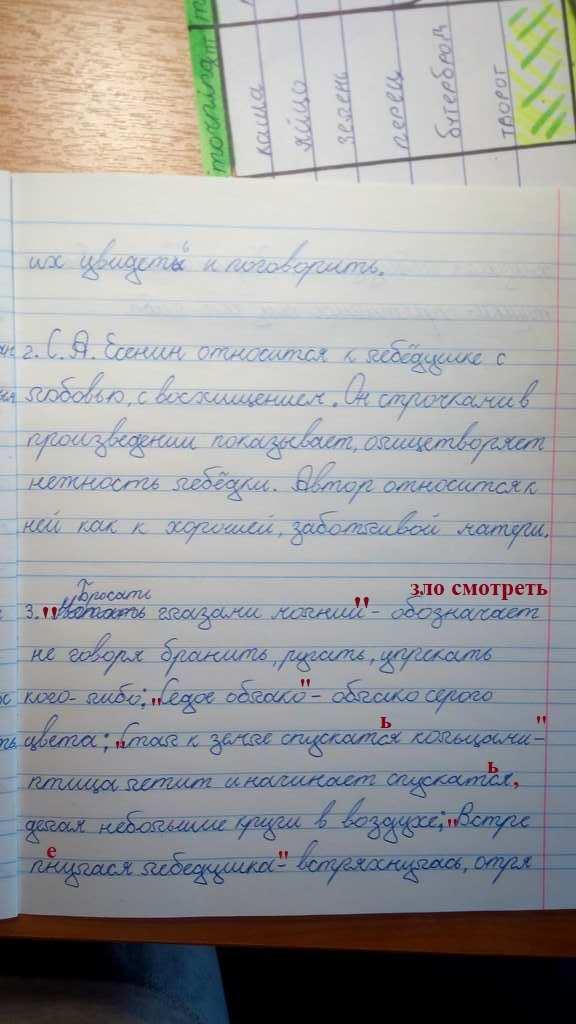 morning
каша
яйцо
зелень
перец
бутерброд
творог
их увидеть и поговорить.
2. С. А. Есенин относится к лебёдушке с
любовью, с восхищением. Он строчками в
произведении показывает, олицетворяет
нетность лебёдки. Автор относится к
ней как к хорошей, заботливой матери.
Бросать
зло смотреть
3. "глазами молнии" - обозначает
не говоря бранить, ругать, упрекать
кого-либо; "Седое облако" - облако серого
цвета; "Стал к земле спускатьс я кольцами" -
птица летит и начинает спускаться,
делая небольшие круги в воздухе; "Встре
пенулася лебедушка" - встряхнулась, отря